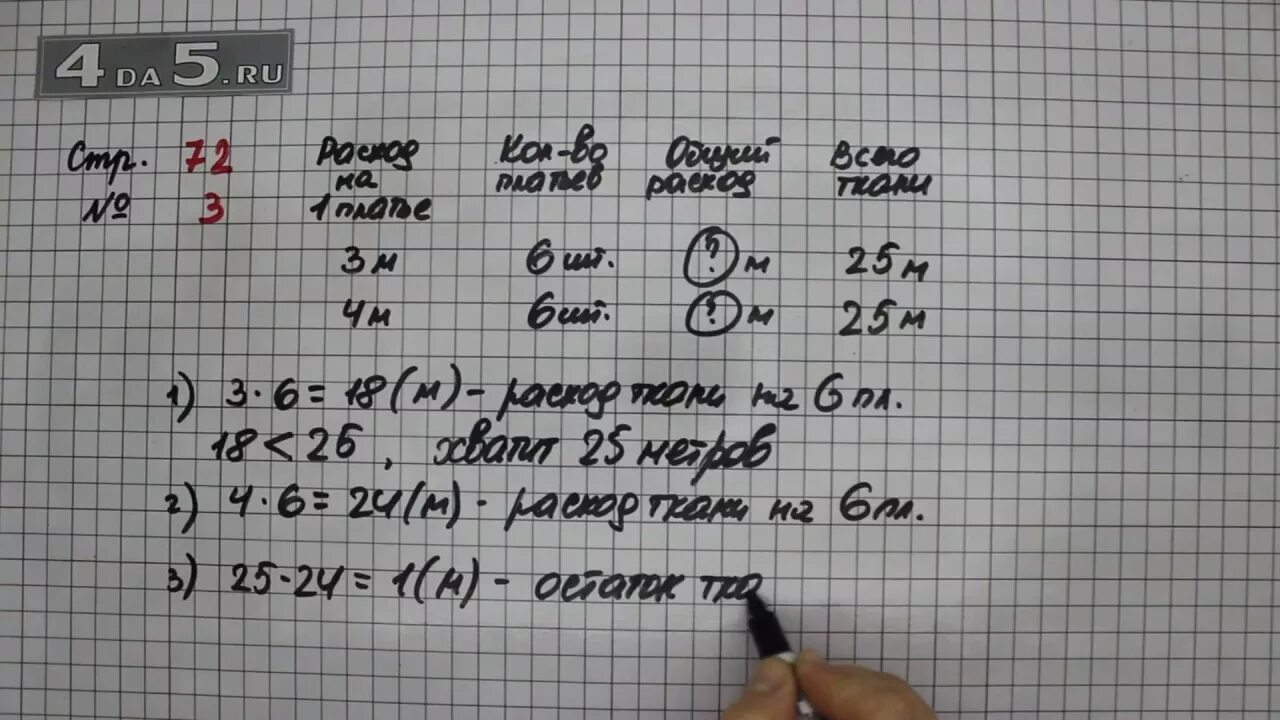 4DA5.RU
Стр. 72 Расход Кол-во Общий Всего
на платьев расход ткани
№ 3 1 платье
3 м 6 шт. ? м 25 м
4 м 6 шт. ? м 25 м
1) 3 · 6 = 18 (м) - расход ткани на 6 пл.
18 < 25 , хватит 25 метров
2) 4 · 6 = 24 (м) - расход ткани на 6 пл.
3) 25 - 24 = 1 (м) - остаток тка